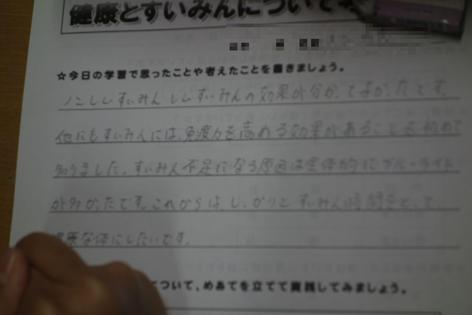 健康とすいみんについて
☆今日の学習で思ったことや考えたことを書きましょう。
すいみん すいみんの効果が分かってよかったです。
他にもすいみんには、免疫力を高める効果があることを初めて
知りました。すいみん不足になる原因は全体的にブルーライト
が多かったです。これからは、しっかりとすいみん時間をとって、
健康な体にしたいです。
について、めあてを立てて実践してみましょう。